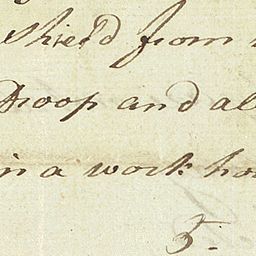 shield from
droop and al
in a work ho
5.